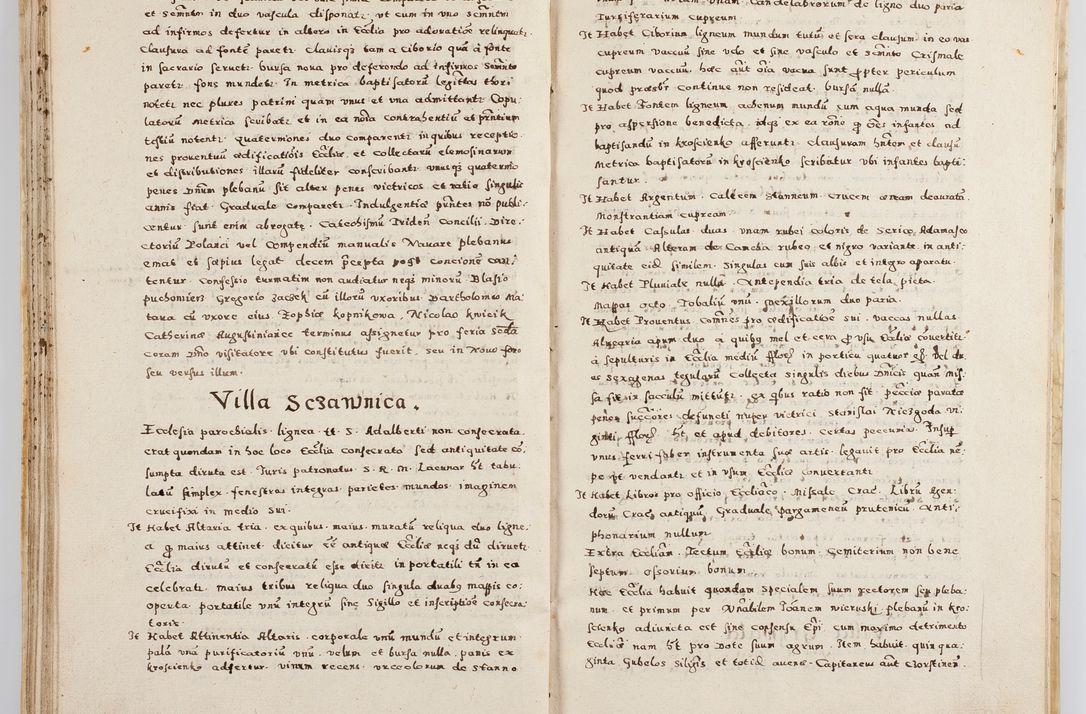 et Semntm in duo vascula disponatr. ut cum in uno Semntm
ad infirmos defertur in altero in Eccliã pro adoratioe relinquatr
Clausura ad fontẽ paretr. Clavisqz tam a Ciborio quã a fonte
in sacrario servetr. bursa nova pro deferendo ad infirmos Semnto
paretr. fons mundetr. In metrica baptisatorũ legittas thori
notetr nec plures patrini quàm unus et una admittantr Copu:
latorũ metrica scribatr et in ea noĩa contrahentiũ et prñtium
testiũ notentr. Quaterniones duo comparentr in quibus receptio:
nes proventuũ aedificatiõis Eccliae, et Collectarũ elemosinarum
et distributiones illarũ fideliter conscribantr. unusqz quaternio
penes Dnum plebanũ sit alter penes victricos et ratio singulis
annis fiat. Graduale comparetr. Indulgentiae prñtes nõ publi:
centur sunt enim abrogatae. Catechismũ Tridẽn Concilii, Dire:
ctoriũ Polana vel Compendiũ manualis Navare plebanus
emat et saepius legat decem prcepta post Concione can:
tentur. Confessio turmatim non audiatur neqz minorũ. Blasio
puchonierz Gregorio zaczek cũ illorũ uxoribus. Bartholomeo ma:
tara cũ uxore eius. Zophiae kopnikowa, Nicolao knicik
Catherinae Augustinianece terminus assignetur pro feria Secda
coram Dno visitatore ubi constitutus fuerit, seu in Novo foro
seu versus illum.
Villa Sczawnica.
Ecclesia parochialis. lignea. tt. S. Adalberti non consecrata.
erat quondam in hoc loco Ecclia consecrata sed antiquitate cõ:
sumpta diruta est. Iuris patronatus. S. R. M. Lacunar ht tabu:
latũ simplex. fenestras integras parietes mundos. imaginem
crucifixi in medio sui.
It Habet Altaria tria. ex quibus. maius. muratũ reliqua duo ligne:
a q maius attinet. dicitur eẽ antiquae Eccliae neqz dũ diruetr
Ecclia dirutũ et consecratũ esse diciti in portatili tñ in ea
celebratr. maius tribus reliqua duo singula duabg mappis co:
operta. portatile unũ integrũ sine Sigillo et inscriptioe consecra:
toris.
It Habet Attinentia Altaris. corporale unũ mundũ et integrum.
palã unã purificatoriũ unũ. velum et bursa nulla. panis ex
kroscienko adfertur. vinum recens. urceolorum de Stanno
unam. Candelabrorum de ligno duo paria
Turiferarium cupreum
It Habet Ciborium ligneum mundum tutũ et sera clausum. in eo vas
cupreum vacuũ sine velo et sine vasculo et scmnto Crismale
cupreum vacuũ, haec aũt oĩa vacua sunt propter periculum
quod praesbr continue non resideat. bursa nulla.
It Habet Fontem ligneum ahenum mundũ cum aqua munda sed
pro aspersione benedicta. idqz ex ea rone q oẽs infantes ad
baptisandũ in kroscienko afferuntr. Clausuram hntem et clausũ
Metrica baptisatorũ in kroscienko scribatur ubi infantes bapti:
santur.
It Habet Argentum. Calicem Stanneum. Crucem aeream deauratã.
Monstrantiam cupream.
It Habet Casulas duas. unam rubei coloris de Sericae Adamasco
antiquã. Alteram de Camcha rubeo et nigro variante. in anti:
quitate eid similem. Singulas cum suis albis et integro aparatu.
It Habet Pluviale nullũ. Antependia tria de tela picta.
Mappas octo. Tobaliũ unũ. Vexillorum duo paria.
It Habet Proventus. Comnes pro aedificatiõe sui. vaccas nullas
Alvearia apum duo a quibg mel et cera q usu Eccliae covertitr
à sepulturis in Ecclia mediũ fflorz in porticu quatuor gz.
as Sexagenas tegularũ Collecta Singulis diebus Dnicis quan mis:
sa fit in sacculũ mittitur. Ex qbus ratio non fit. peccie parate
penes succores defuncti nuper victrici. Stanislai Niezgoda vi:
ginti fflorz. ht et apud debitores. certas pecunias. Insup
unus ferri faber instrumenta suae artis. legavit pro Ecclia nõ:
pe pt vendantr et in usum Eccliae convertantr
It Habet Libros pro officio Eccliaco. Missale Crac. Librũ Agen:
dorũ Crac antiquũ, Graduale pargameneũ prutenicũ. Anti:
phonarium nullum.
Extra Eccliam. Tectum Eccliae bonum. Cemiterium non bene
septum. ossorium bonum.
Haec Ecclia habuit quondam Specialem suum rectorem seu pleba:
num. et primum per Vnabilem Ioanem wieruski plebanũ in kro:
scienko adiuncta est sine consensu Epi cum maximo detrimento
Eccliae nam ht pro Dote suum agrum. Item habuit quinqua:
ginta Gubelos Silgis et totid avenae. Capitaneus aũt Czorstinen.